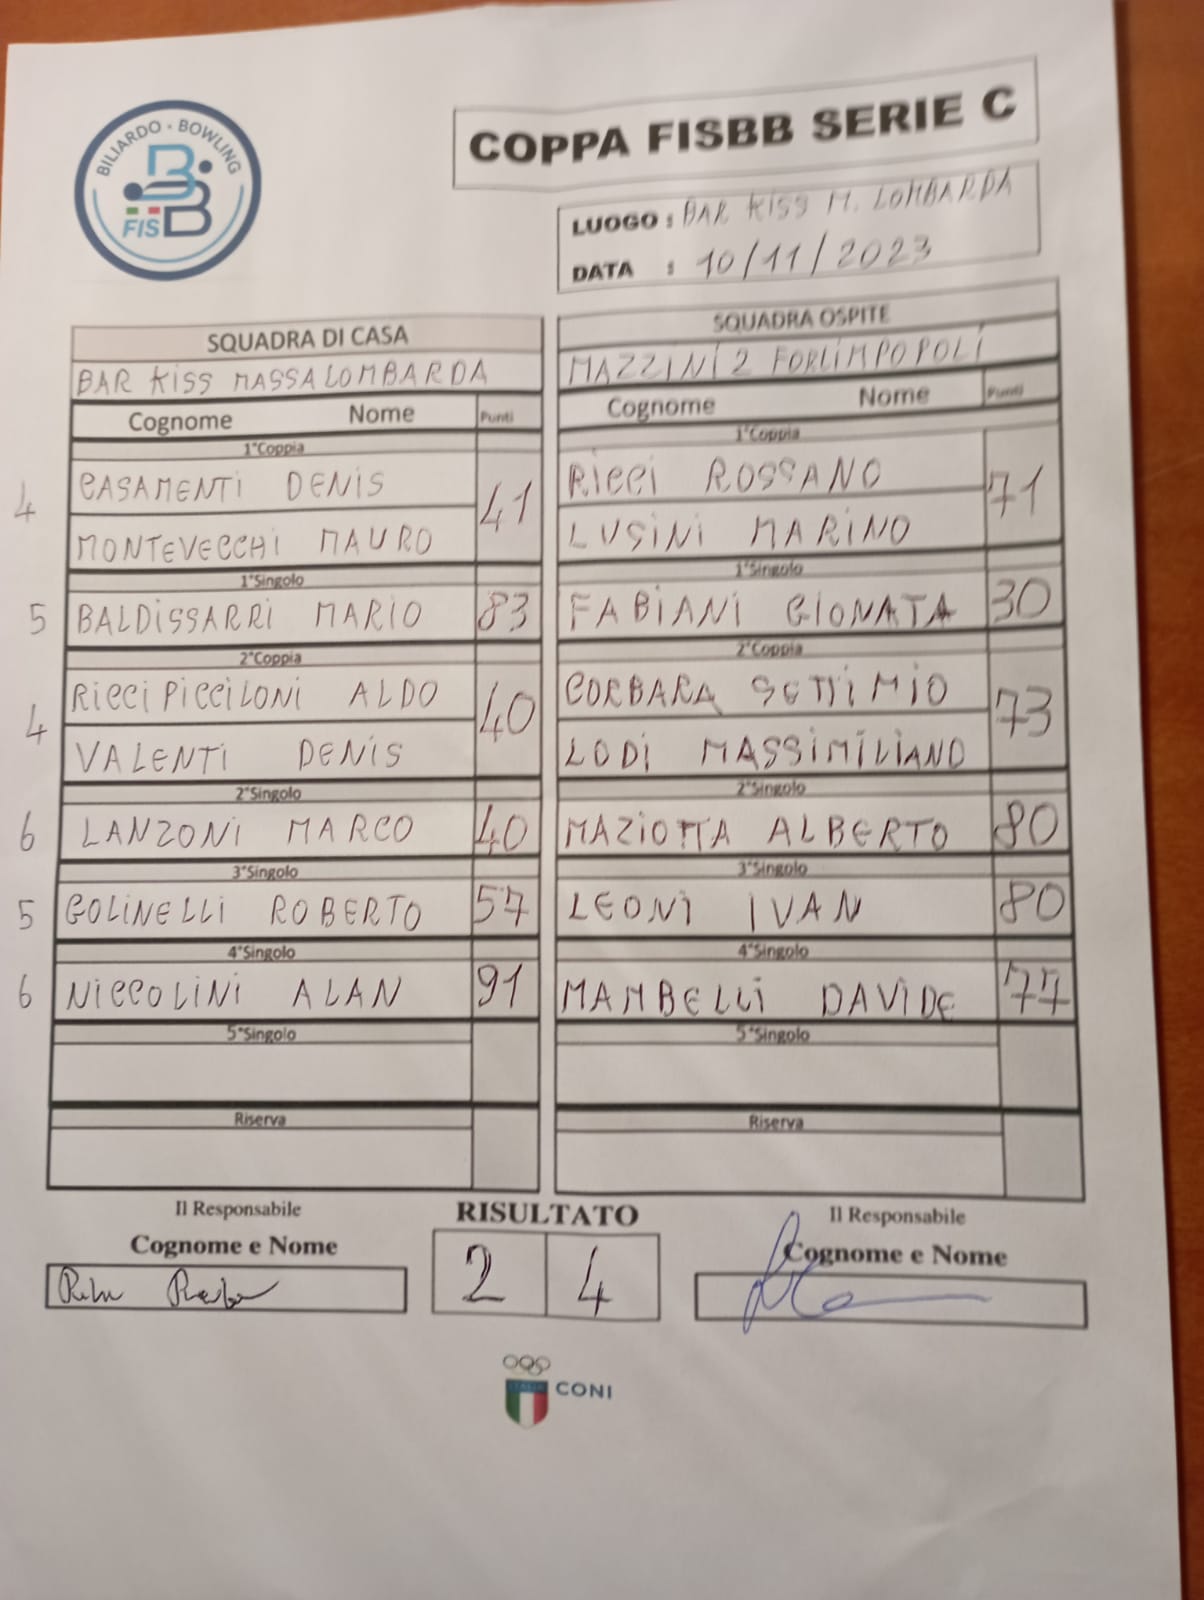 BILIARDO - BOWLING
FISBB
COPPA FISBB SERIE C
LUOGO : BAR KISS M. LOMBARDA
DATA : 10/11/2023
SQUADRA DI CASA
BAR KISS MASSALOMBARDA
Cognome Nome Punti
1°Coppia
4 CASAMENTI DENIS 41
MONTEVECCHI MAURO
1°Singolo
5 BALDISSARRI MARIO 83
2°Coppia
RICCI PICCILONI ALDO 40
4 VALENTI DENIS
2°Singolo
6 LANZONI MARCO 40
3°Singolo
5 GOLINELLI ROBERTO 57
4°Singolo
6 NICCOLINI ALAN 91
5°Singolo
Riserva
SQUADRA OSPITE
MAZZINI 2 FORLIMPOPOLI
Cognome Nome Punti
1°Coppia
RICCI ROSSANO 71
LUSINI MARINO
1°Singolo
FABIANI GIONATA 30
2°Coppia
CORBARA SETTIMIO 73
LODI MASSIMILIANO
2°Singolo
MAZIOTTA ALBERTO 80
3°Singolo
LEONI IVAN 80
4°Singolo
MAMBELLI DAVIDE 77
5°Singolo
Riserva
Il Responsabile
Cognome e Nome
RISULTATO
2 4
Il Responsabile
Cognome e Nome
ITALIA
CONI